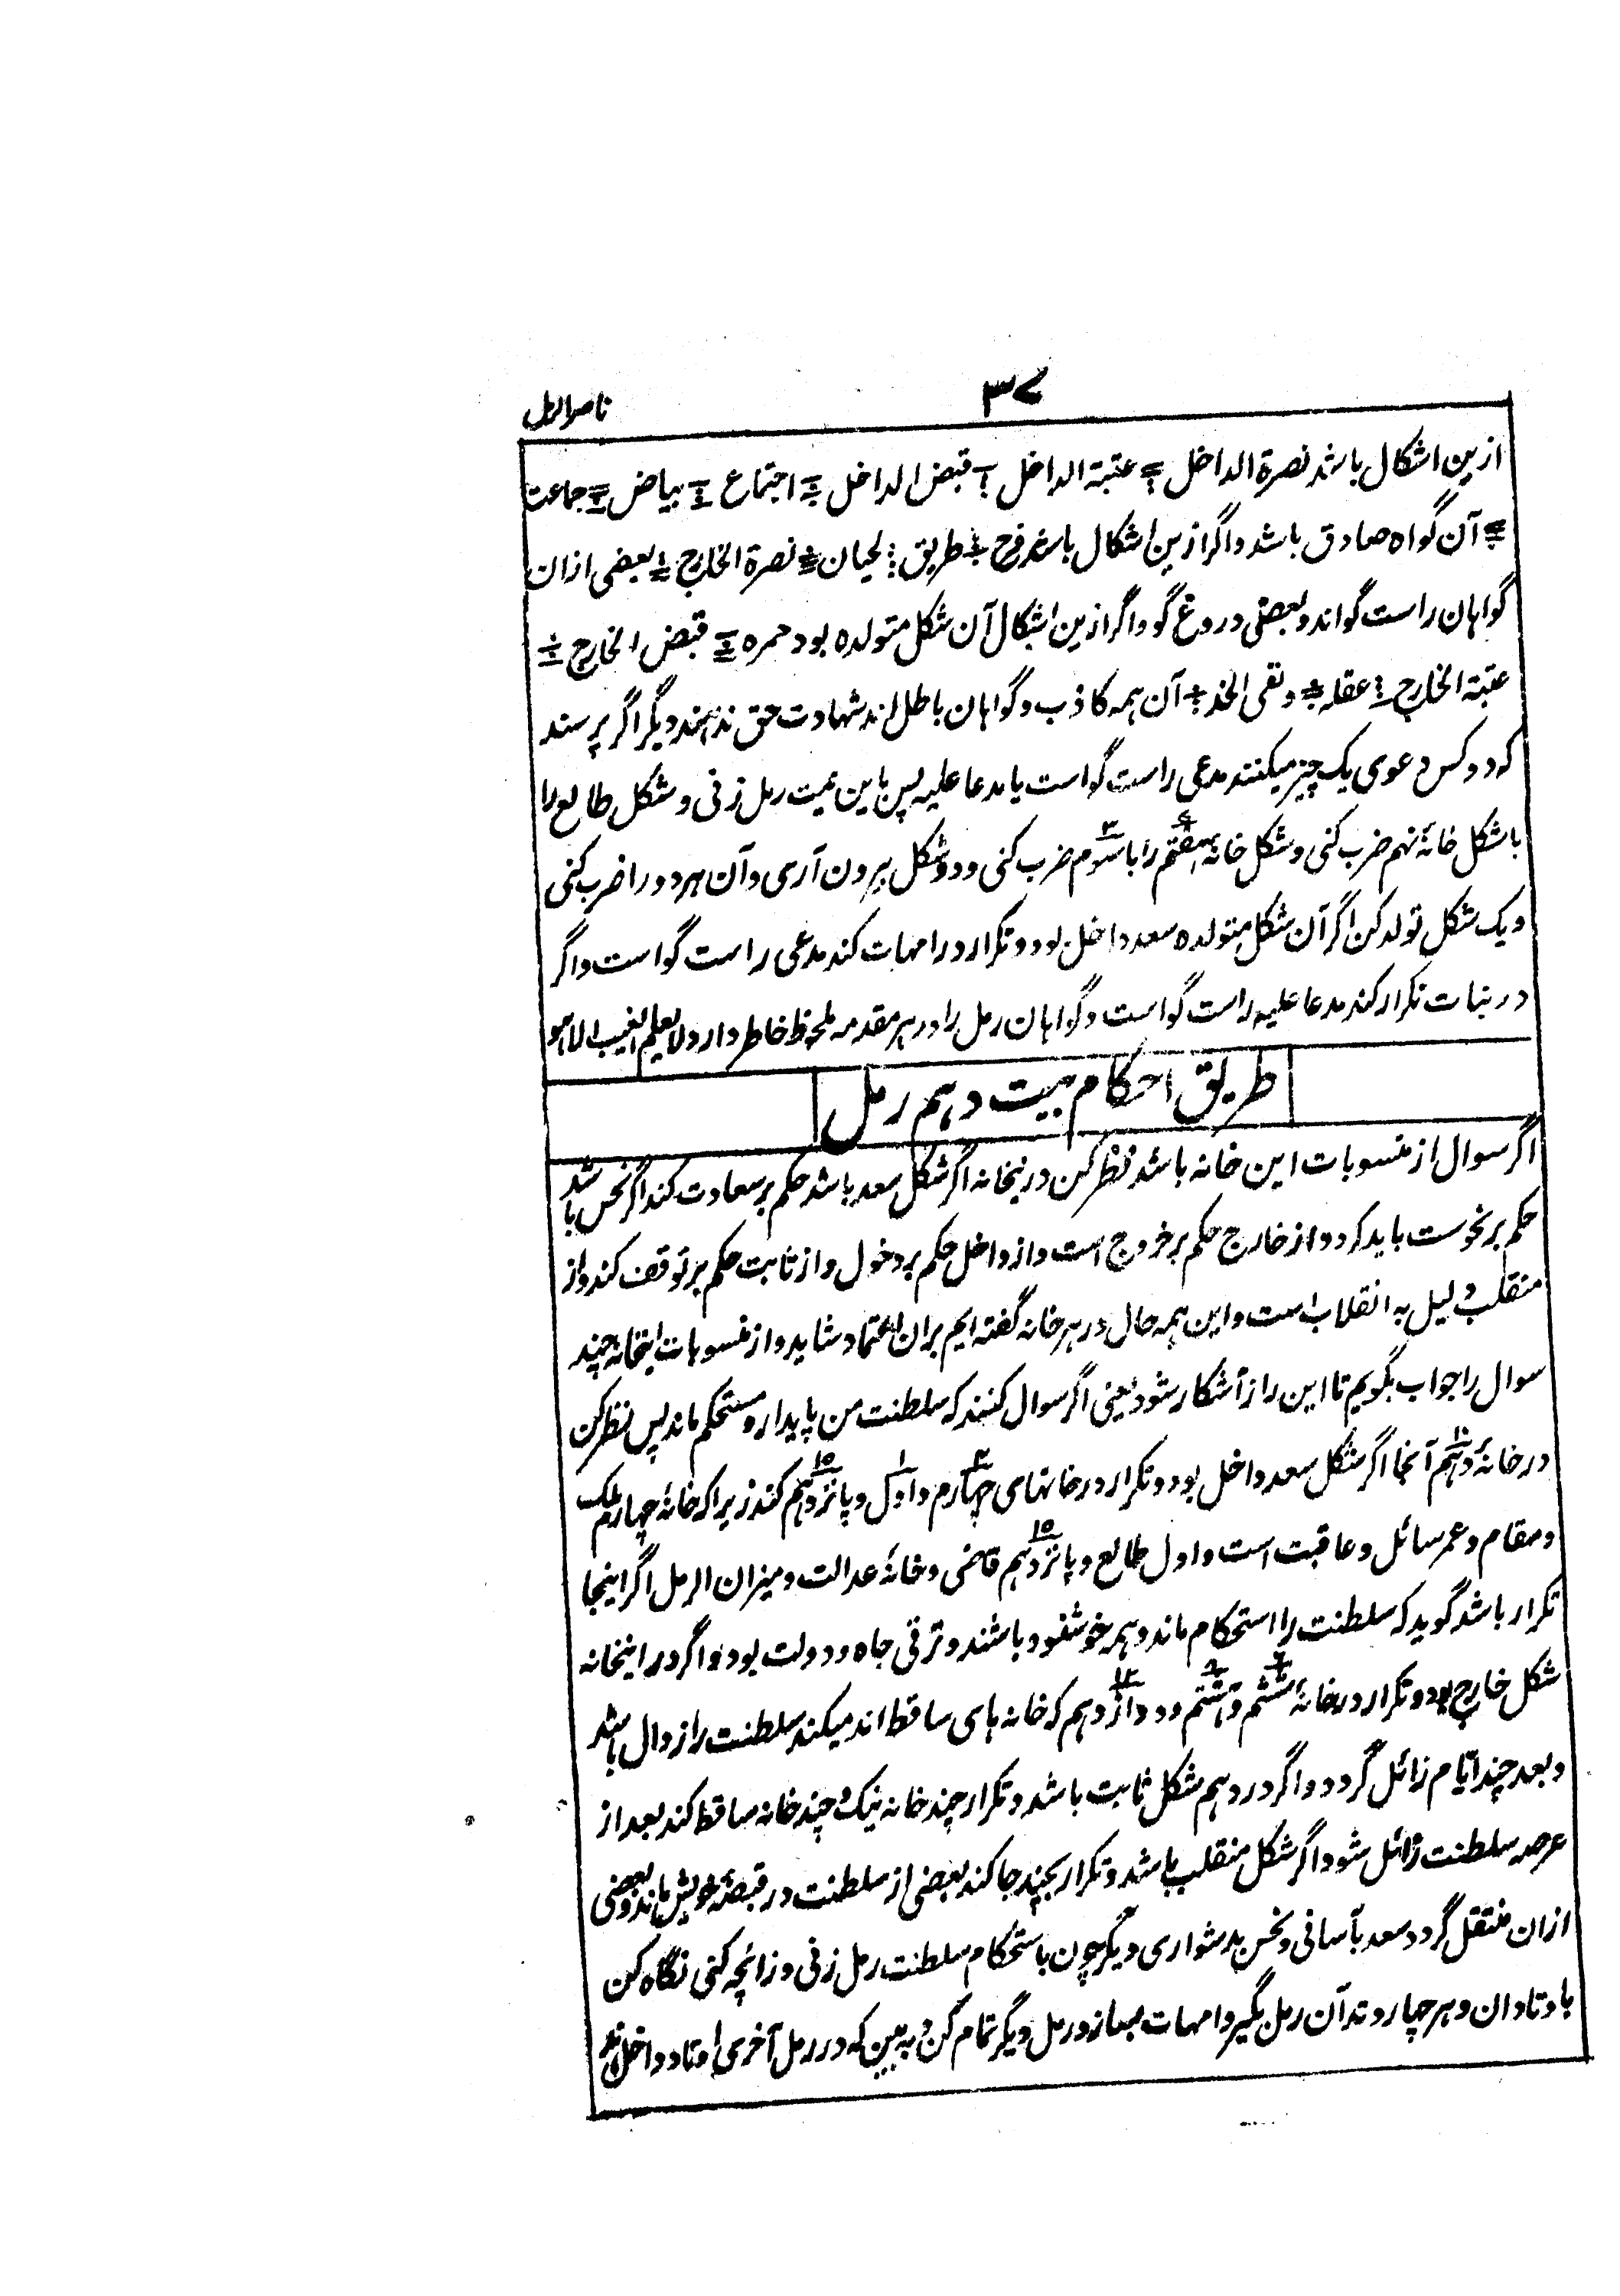 ۳۷
ناصر الرمل
ازین اشکال باشد نصرة الداخل عتبة الداخل قبض الداخل اجتماع بیاض جماعت
آن گواه صادق باشد و اگر ازین اشکال باشد فرح طریق لحیان نصرة الخارج بعضی ازان
گواهان راست گو اند و بعضی دروغ گو و اگر ازین اشکال آن شکل متولده بود حمره قبض الخارج
عتبة الخارج عقله و نقی الخد آن همه کاذب و گواهان باطل اند شهادت حق ندهند دیگر اگر پرسند
که دو کس دعوی یک چیز میکنند مدعی راست گو است یا مدعا علیه پس باین نیت رمل زنی و شکل طالع را
با شکل خانهٔ نهم ضرب کنی و شکل خانهٔ هفتم را با سوم ضرب کنی و دو شکل بیرون آری و آن هر دو را ضرب کنی
و یک شکل تولد کن اگر آن شکل متولده سعد داخل بود و تکرار در امهات کند مدعی راست گو است و اگر
در بنات تکرار کند مدعا علیه راست گو است و گواهان رمل را در هر مقدمه ملحوظ خاطر دارد لا یعلم الغیب الا هو
طریق احکام بیت دهم رمل
اگر سوال از منسوبات این خانه باشد نظر کن درینخانه اگر شکل سعد باشد حکم بر سعادت کند اگر نحس باشد
حکم بر نحوست باید کرد و از خارج حکم بر خروج است و از داخل حکم بر دخول و از ثابت حکم بر توقف کند و از
منقلب دلیل به انقلاب است و این همه حال در هر خانه گفته ایم بران اعتماد شاید و از منسوبات اینخانه چند
سوال را جواب بگویم تا این راز آشکار شود یعنی اگر سوال کنند که سلطنت من پایدار و مستحکم ماند پس نظر کن
در خانهٔ دهم آنجا اگر شکل سعد داخل بود و تکرار در خانهای چهارم و اول و پانزدهم کند زیرا که خانهٔ چهارم ملک
و مقام و عمر سائل و عاقبت است و اول طالع و پانزدهم قاضی و خانهٔ عدالت و میزان الرمل اگر اینجا
تکرار باشد گوید که سلطنت را استحکام ماند و همه خوشنود باشند و ترقی جاه و دولت بود و اگر در اینخانه
شکل خارج بود و تکرار در خانهٔ ششم و هشتم و دوازدهم که خانه های ساقط اند میکند سلطنت را زوال باشد
و بعد چند ایام زائل گردد و اگر در دهم شکل ثابت باشد و تکرار چند خانه نیک و چند خانه ساقط کند بعد از
عرصه سلطنت زائل شود اگر شکل منقلب باشد و تکرار بچند جا کند بعضی از سلطنت در قبضهٔ خویش ماند و بعضی
ازان منتقل گردد سعد بآسانی و نحس بدشواری دیگر چون باستحکام سلطنت رمل زنی و زائچه کنی نگاه کن
باوتاد ان و هر چهار وتد آن رمل بگیر و امهات بساز و رمل دیگر تمام کن و به بین که در رمل آخری اوتاد داخل اند